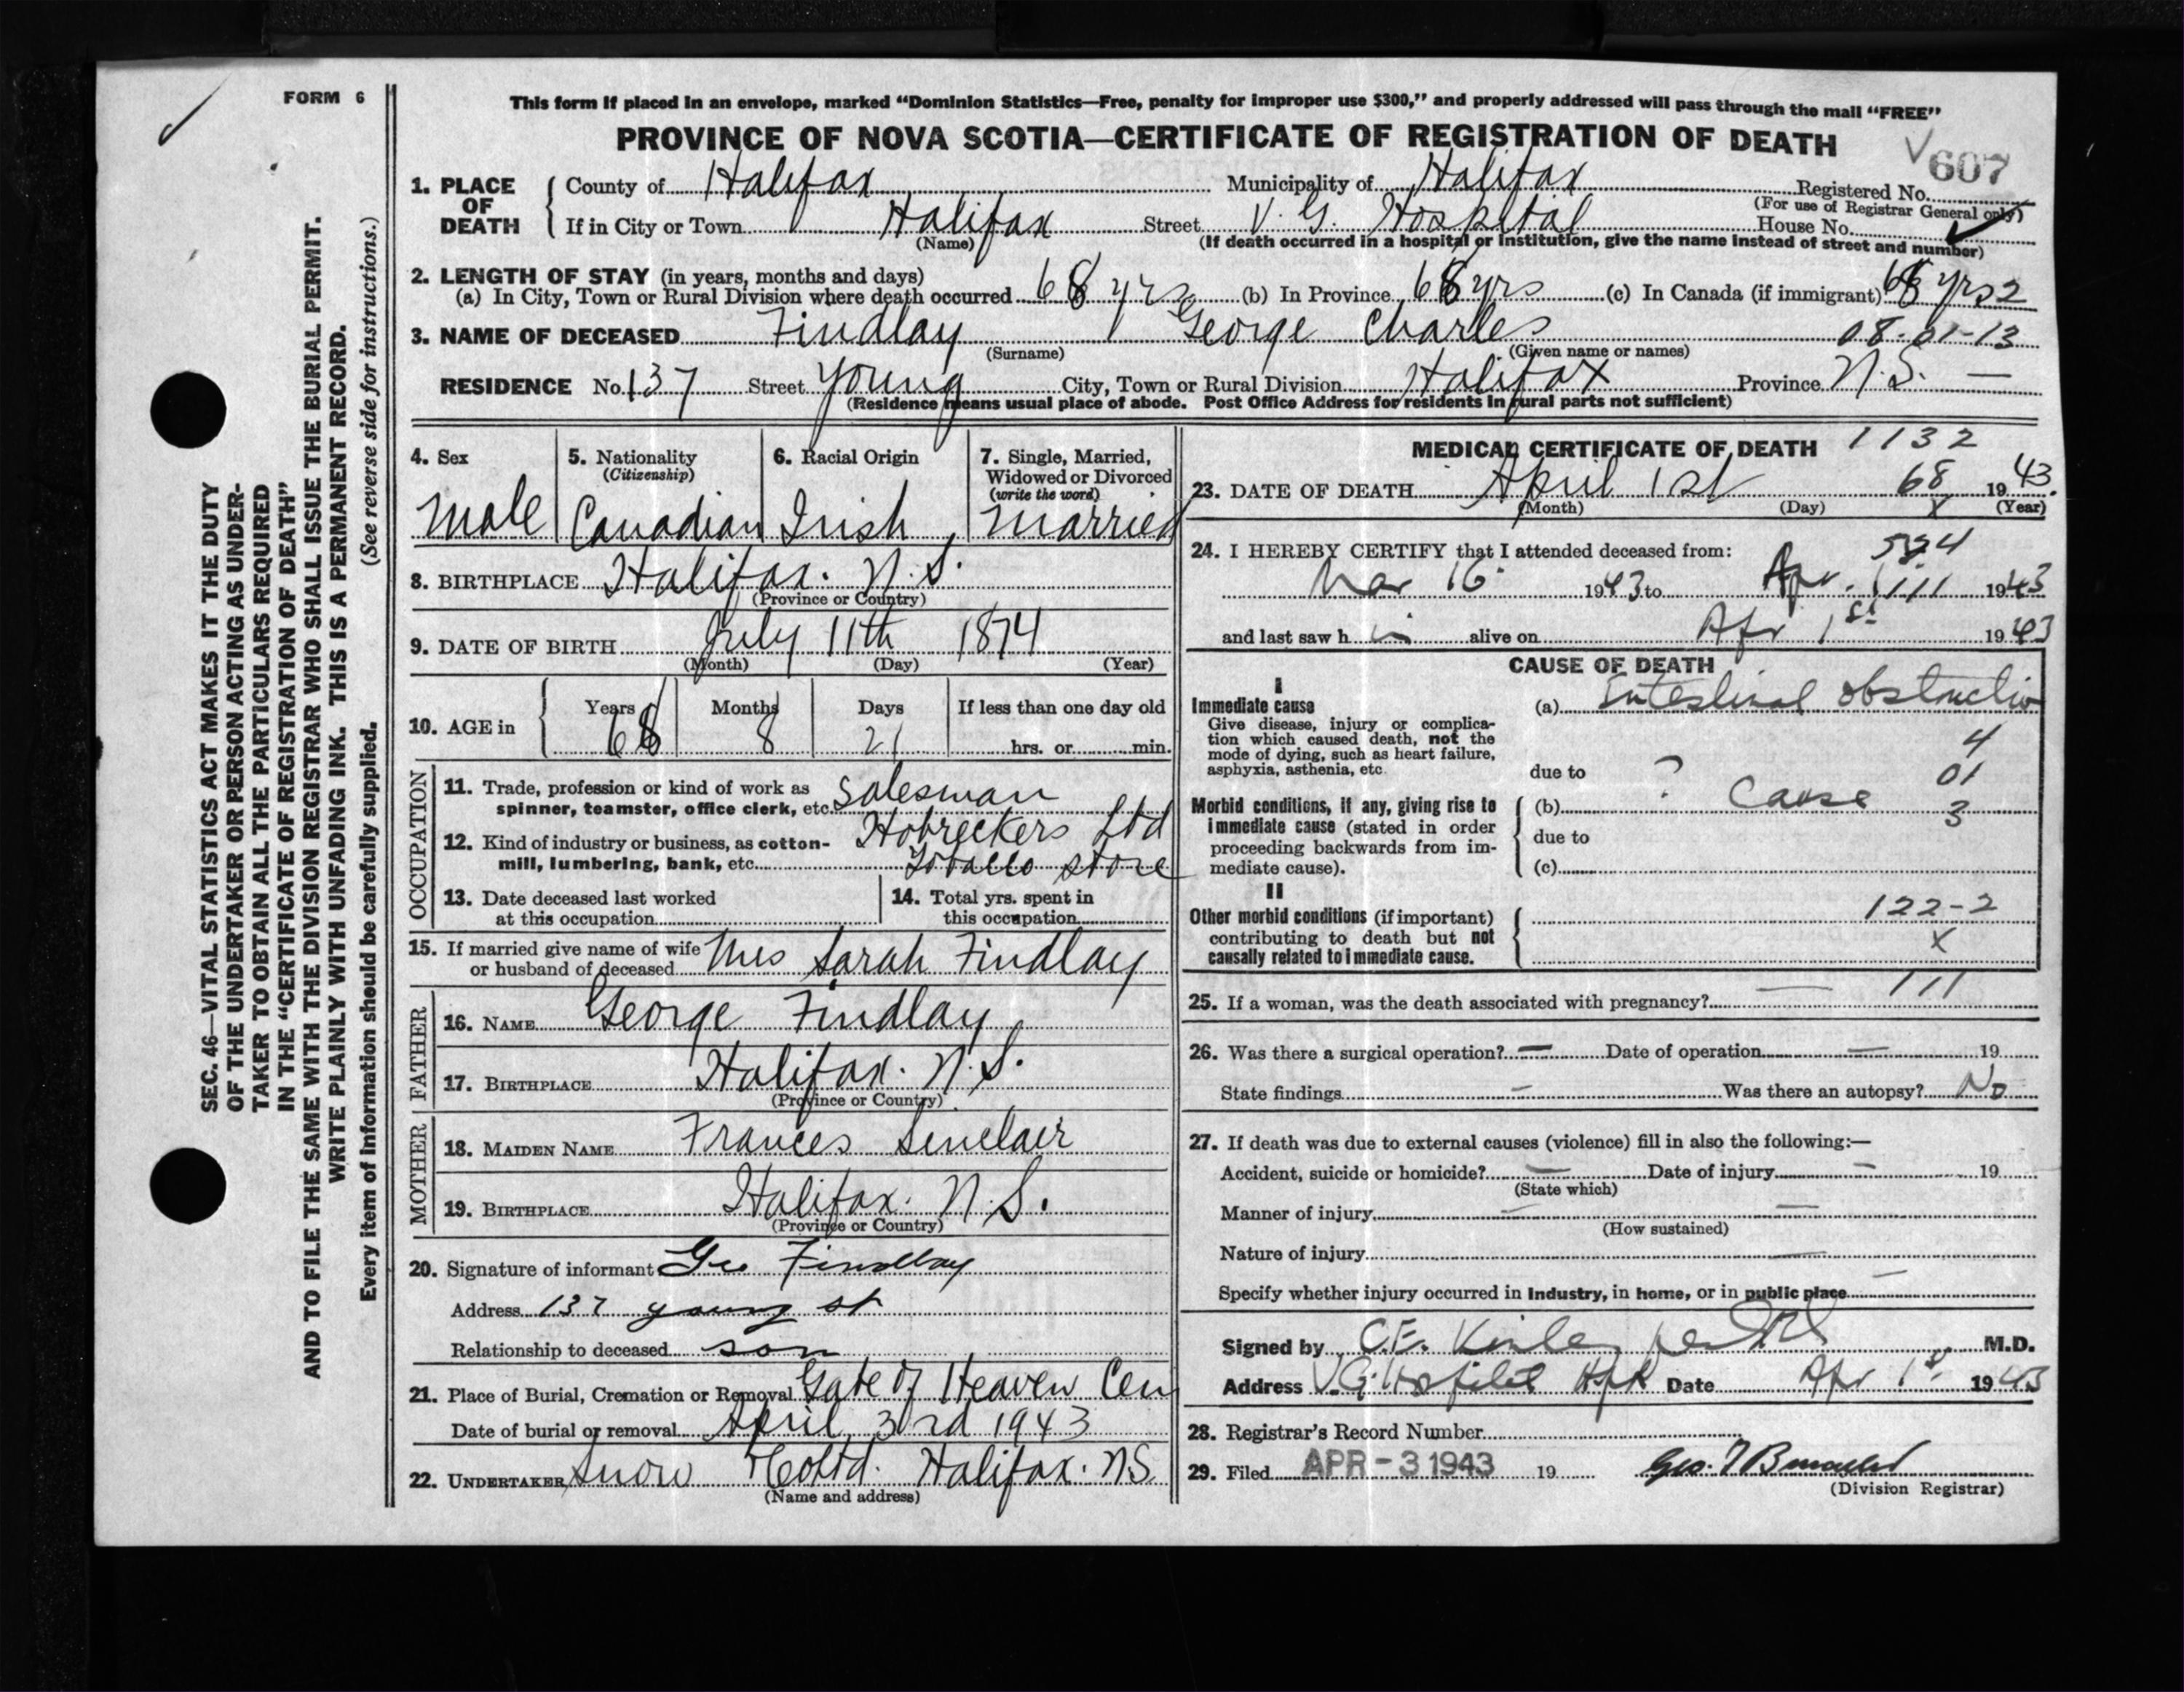 FORM 6
This form if placed in an envelope, marked “Dominion Statistics—Free, penalty for improper use $300,” and properly addressed will pass through the mail “FREE”
PROVINCE OF NOVA SCOTIA—CERTIFICATE OF REGISTRATION OF DEATH
V 607
1. PLACE OF DEATH
County of Halifax Municipality of Halifax Registered No.
(For use of Registrar General only)
If in City or Town Halifax Street V. G. Hospital House No.
(Name) (If death occurred in a hospital or institution, give the name instead of street and number)
2. LENGTH OF STAY (in years, months and days)
(a) In City, Town or Rural Division where death occurred 68 yrs (b) In Province 68 yrs (c) In Canada (if immigrant) 68 yrs 2
3. NAME OF DECEASED Findlay George Charles 08-01-13
(Surname) (Given name or names)
RESIDENCE No. 137 Street Young City, Town or Rural Division Halifax Province N.S. —
(Residence means usual place of abode. Post Office Address for residents in rural parts not sufficient)
4. Sex
Male
5. Nationality
(Citizenship)
Canadian
6. Racial Origin
Irish
7. Single, Married,
Widowed or Divorced
(write the word)
Married
8. BIRTHPLACE Halifax. N.S.
(Province or Country)
9. DATE OF BIRTH July 11th 1874
(Month) (Day) (Year)
10. AGE in
Years Months Days If less than one day old
68 8 21 hrs. or min.
OCCUPATION
11. Trade, profession or kind of work as
spinner, teamster, office clerk, etc. Salesman
12. Kind of industry or business, as cotton-
mill, lumbering, bank, etc.
Hobreckers Ltd
Tobacco store
13. Date deceased last worked
at this occupation
14. Total yrs. spent in
this occupation
15. If married give name of wife
or husband of deceased Mrs Sarah Findlay
FATHER
16. NAME George Findlay
17. BIRTHPLACE Halifax. N.S.
(Province or Country)
MOTHER
18. MAIDEN NAME Frances Sinclair
19. BIRTHPLACE Halifax. N.S.
(Province or Country)
20. Signature of informant Geo Findlay
Address 137 young st
Relationship to deceased son
21. Place of Burial, Cremation or Removal Gate of Heaven Cem
Date of burial or removal April 3rd 1943
22. UNDERTAKER Snow & Co Ltd. Halifax. N.S.
(Name and address)
MEDICAL CERTIFICATE OF DEATH 1132
23. DATE OF DEATH April 1st 68 1943.
(Month) (Day) X (Year)
24. I HEREBY CERTIFY that I attended deceased from:
Mar 16 1943 to Apr. 1943
and last saw h im alive on Apr 1st 1943
CAUSE OF DEATH
I
Immediate cause
Give disease, injury or complica-
tion which caused death, not the
mode of dying, such as heart failure,
asphyxia, asthenia, etc.
(a) Intestinal obstruction
4
due to ? 01
Morbid conditions, if any, giving rise to
immediate cause (stated in order
proceeding backwards from im-
mediate cause).
(b) Cause 3
due to
(c)
II
Other morbid conditions (if important)
contributing to death but not
causally related to immediate cause.
122-2
X
25. If a woman, was the death associated with pregnancy? — 111
26. Was there a surgical operation? — Date of operation — 19
State findings — Was there an autopsy? No
27. If death was due to external causes (violence) fill in also the following:—
Accident, suicide or homicide? — Date of injury — 19
(State which)
Manner of injury — —
(How sustained)
Nature of injury —
Specify whether injury occurred in industry, in home, or in public place —
Signed by C.E. Kinley M.D.
Address V.G. Hospital Hfx Date Apr 1st 1943
28. Registrar's Record Number
29. Filed APR - 3 1943 19
(Division Registrar)
SEC. 46—VITAL STATISTICS ACT MAKES IT THE DUTY
OF THE UNDERTAKER OR PERSON ACTING AS UNDER-
TAKER TO OBTAIN ALL THE PARTICULARS REQUIRED
IN THE “CERTIFICATE OF REGISTRATION OF DEATH”
AND TO FILE THE SAME WITH THE DIVISION REGISTRAR WHO SHALL ISSUE THE BURIAL PERMIT.
WRITE PLAINLY WITH UNFADING INK. THIS IS A PERMANENT RECORD.
Every item of information should be carefully supplied. (See reverse side for instructions.)